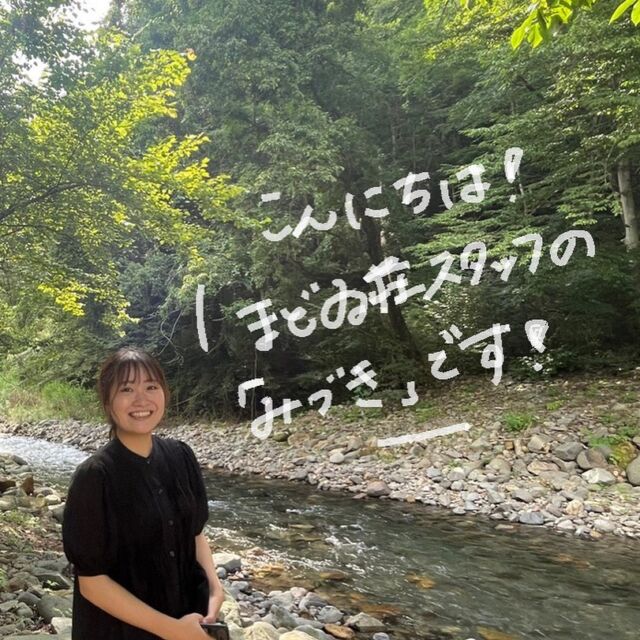 こんにちは!
まどゐ荘スタッフの
「みづき」です!